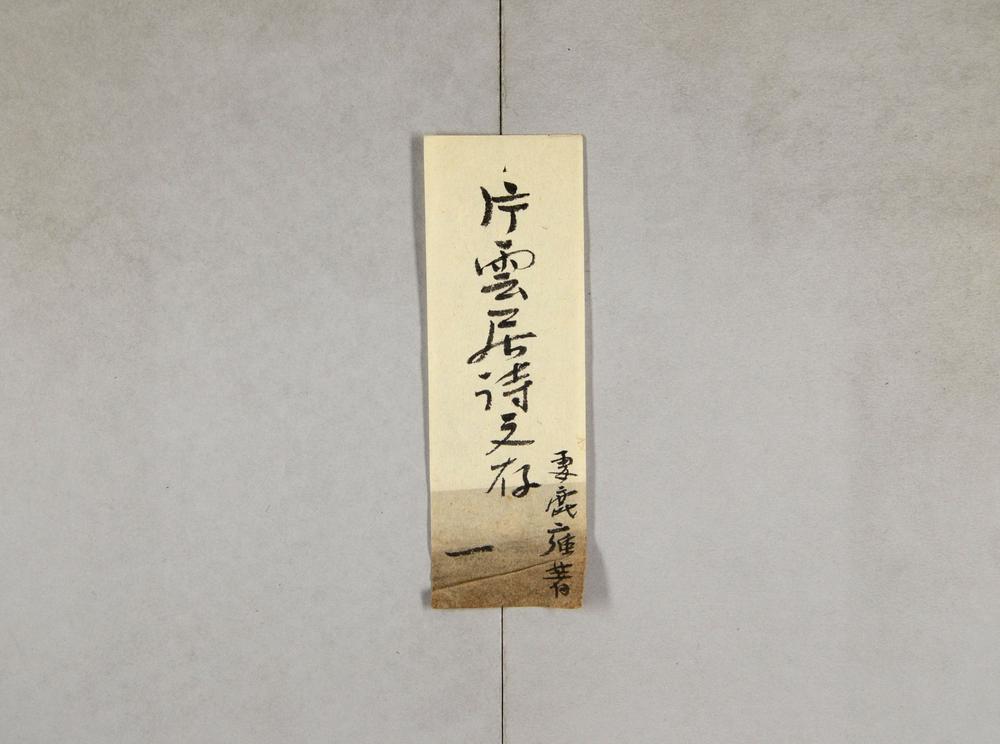 片雲居诗文存
夏鹿雍著
一